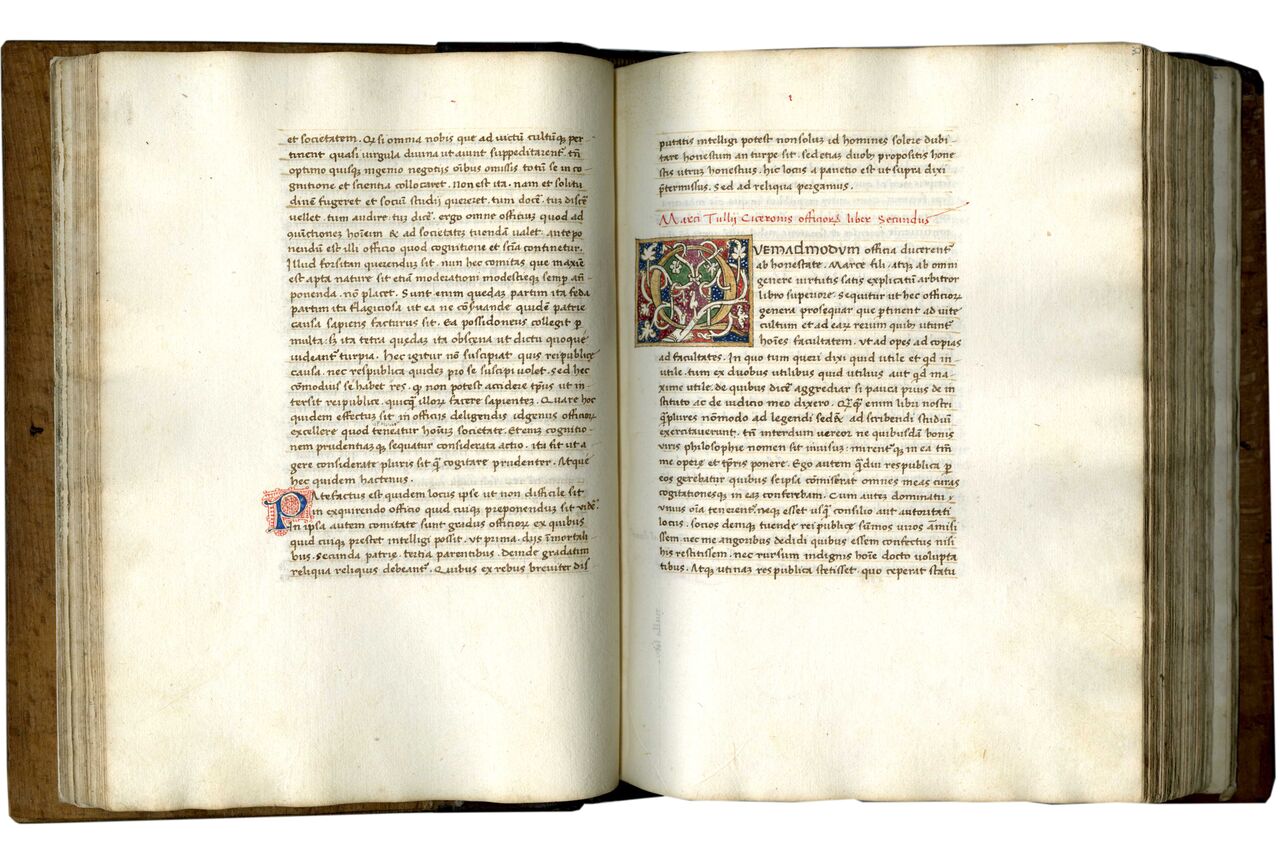 et societatem. Q, si omnia nobis que ad victū cultūq, per
tinent quasi virgula divina ut aiunt suppeditarent᷑. tn̄
optimo quisq, ingenio negotiis oĩbus omissis totū se in co
gnitione et scientia collocaret. Non est ita. nam et solitu
dinē fugeret et sociū studij quereret. tum docē. tuʒ discē
vellet. tum audire. tuʒ dicē. ergo omne officiuʒ quod ad
ꝯiūctiones hoīem & ad societateʒ tuendā ualet. antepo
nendū est illi officio quod cognitione et sciā continetur.
Illud forsitan querendus sit. nun hec comitas que maxiē
est apta nature sit etiā moderationi modestieq, semp an̄
ponenda. nō placet. Sunt enim quedaʒ partim ita feda
partim ita flagiciosa ut ea ne cōseruande quidē patrie
causa sapiens facturus sit. Ea possidoneus collegit p
multa: sʒ ita tetra quedaʒ ita obscena ut dictu quoque
uideant᷑ turpia. Hec igitur nō suscipiat quis reipublice
causa. nec respublica quideʒ pro se suscipi uolet. sed hec
cōmodius se habet res. ꝙ non potest accidere tp̄us ut in
tersit reipublice. quicq̄ illoꝝ facere sapienteʒ. Quare hoc
quidem effectuʒ sit in officiis deligendis id genus officioꝝ
excellere quod teneatur hoīuʒ societate. Etenīʒ cognitio
nem prudentiaʒ q, sequatur considerata actio. ita fit ut a
gere considerate pluris sit q̄ cogitare prudenter. Atque
hec quidem hactenus.
Patefactus est quidem locus ipse ut non difficile sit
in exquirendo officio quid cuiq, preponenduʒ sit vidē.
In ipsa autem comitate sunt gradus officioꝝ ex quibus
quid cuiq, prestet intelligi possit. ut prima. dijs īmortali
bus. Secunda patrie. tertia parentibus. Deinde gradatim
reliqua reliquis debeant᷑. Quibus ex rebus breviter dis
putatis intelligi potest non soluʒ id homines solere dubi
tare honestum an turpe sit. sed etiaʒ duob; propositis hone
stis utruʒ honestius. hic locus a panetio est ut supra dixi
p̄termissus. Sed ad reliqua pergamus.
Marci Tullij Ciceronis officioꝝ liber Secundus
QVEMADMODVM officia ducerent᷑
ab honestate. Marce fili. atq, ab omni
genere virtutis satis explicatū arbitror
libro superiore. Sequitur ut hec officioꝝ
genera prosequar que ꝑtinent ad vite
cultum et ad eaꝝ rerum quib; utunt᷑
hoīes facultatem. ut ad opes ad copias
ad facultates. In quo tum queri dixi quid utile et qd in
utile. tum ex duobus utilibus quid utilius aut qd ma
xime utile. de quibus dicē aggrediar si pauca prius de in
stituto ac de iudicio meo dixero. Qq̄ enim libri nostri
q̄plures nō modo ad legendi sed & ad scribendi studiū
exercitauerunt. tn̄ interdum vereor ne quibusdā bonis
viris philosophie nomen sit inuisuʒ. mirent᷑q, in ea tm̄
me opere et tp̄ris ponere. Ego autem q̄diu respublica p
eos gerebatur quibus se ipsa cōmiserat omnes meas curas
cogitationesq, in eaʒ conferebam. Cum auteʒ dominatu
unius oīa tenerent᷑. neq, esset usq̄ consilio aut autoritati
locus. socios deniq, tuende rei publice sūmos viros amisi
ssem nec me angoribus dedidi quibus essem confectus nisi
his restitissem. nec rursum indignis hoīe docto volupta
tibus. Atq, utinaʒ res publica stetisset. quo ceperit statu